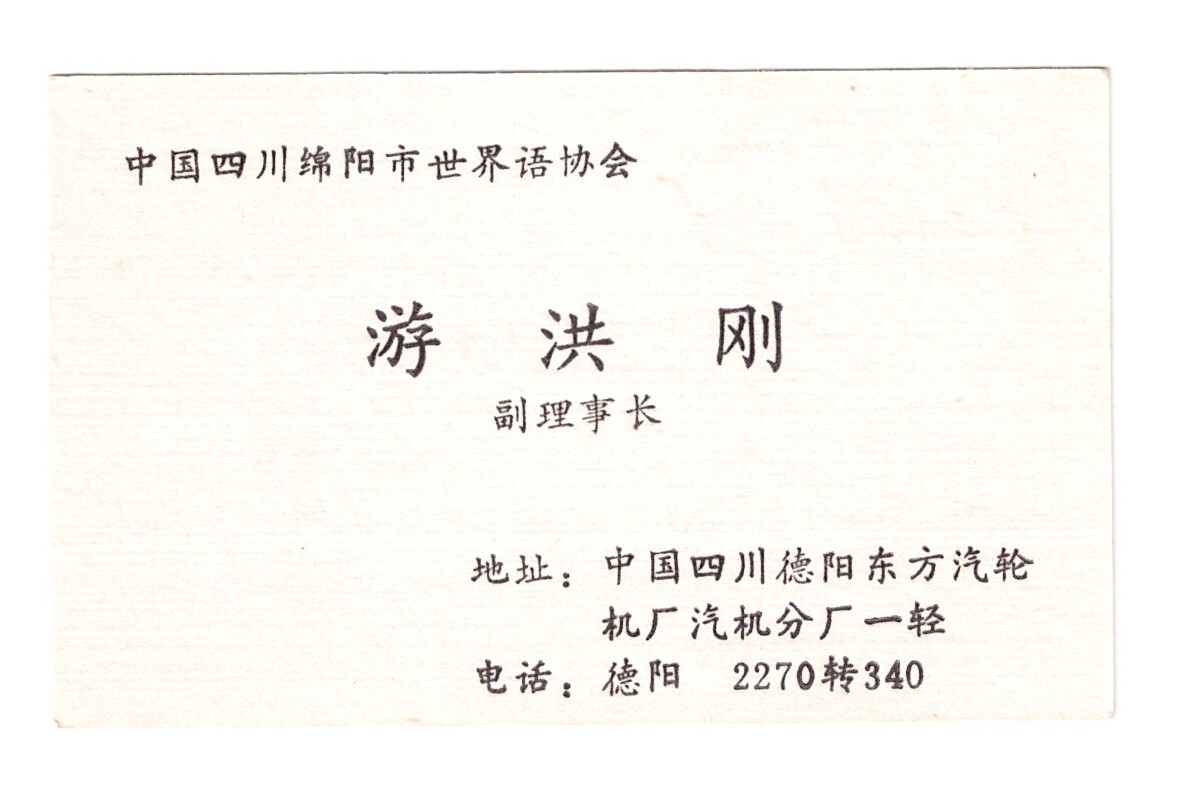 中国四川绵阳市世界语协会
游 洪 刚
副理事长
地址：中国四川德阳东方汽轮
机厂汽机分厂一轻
电话：德阳 2270转340